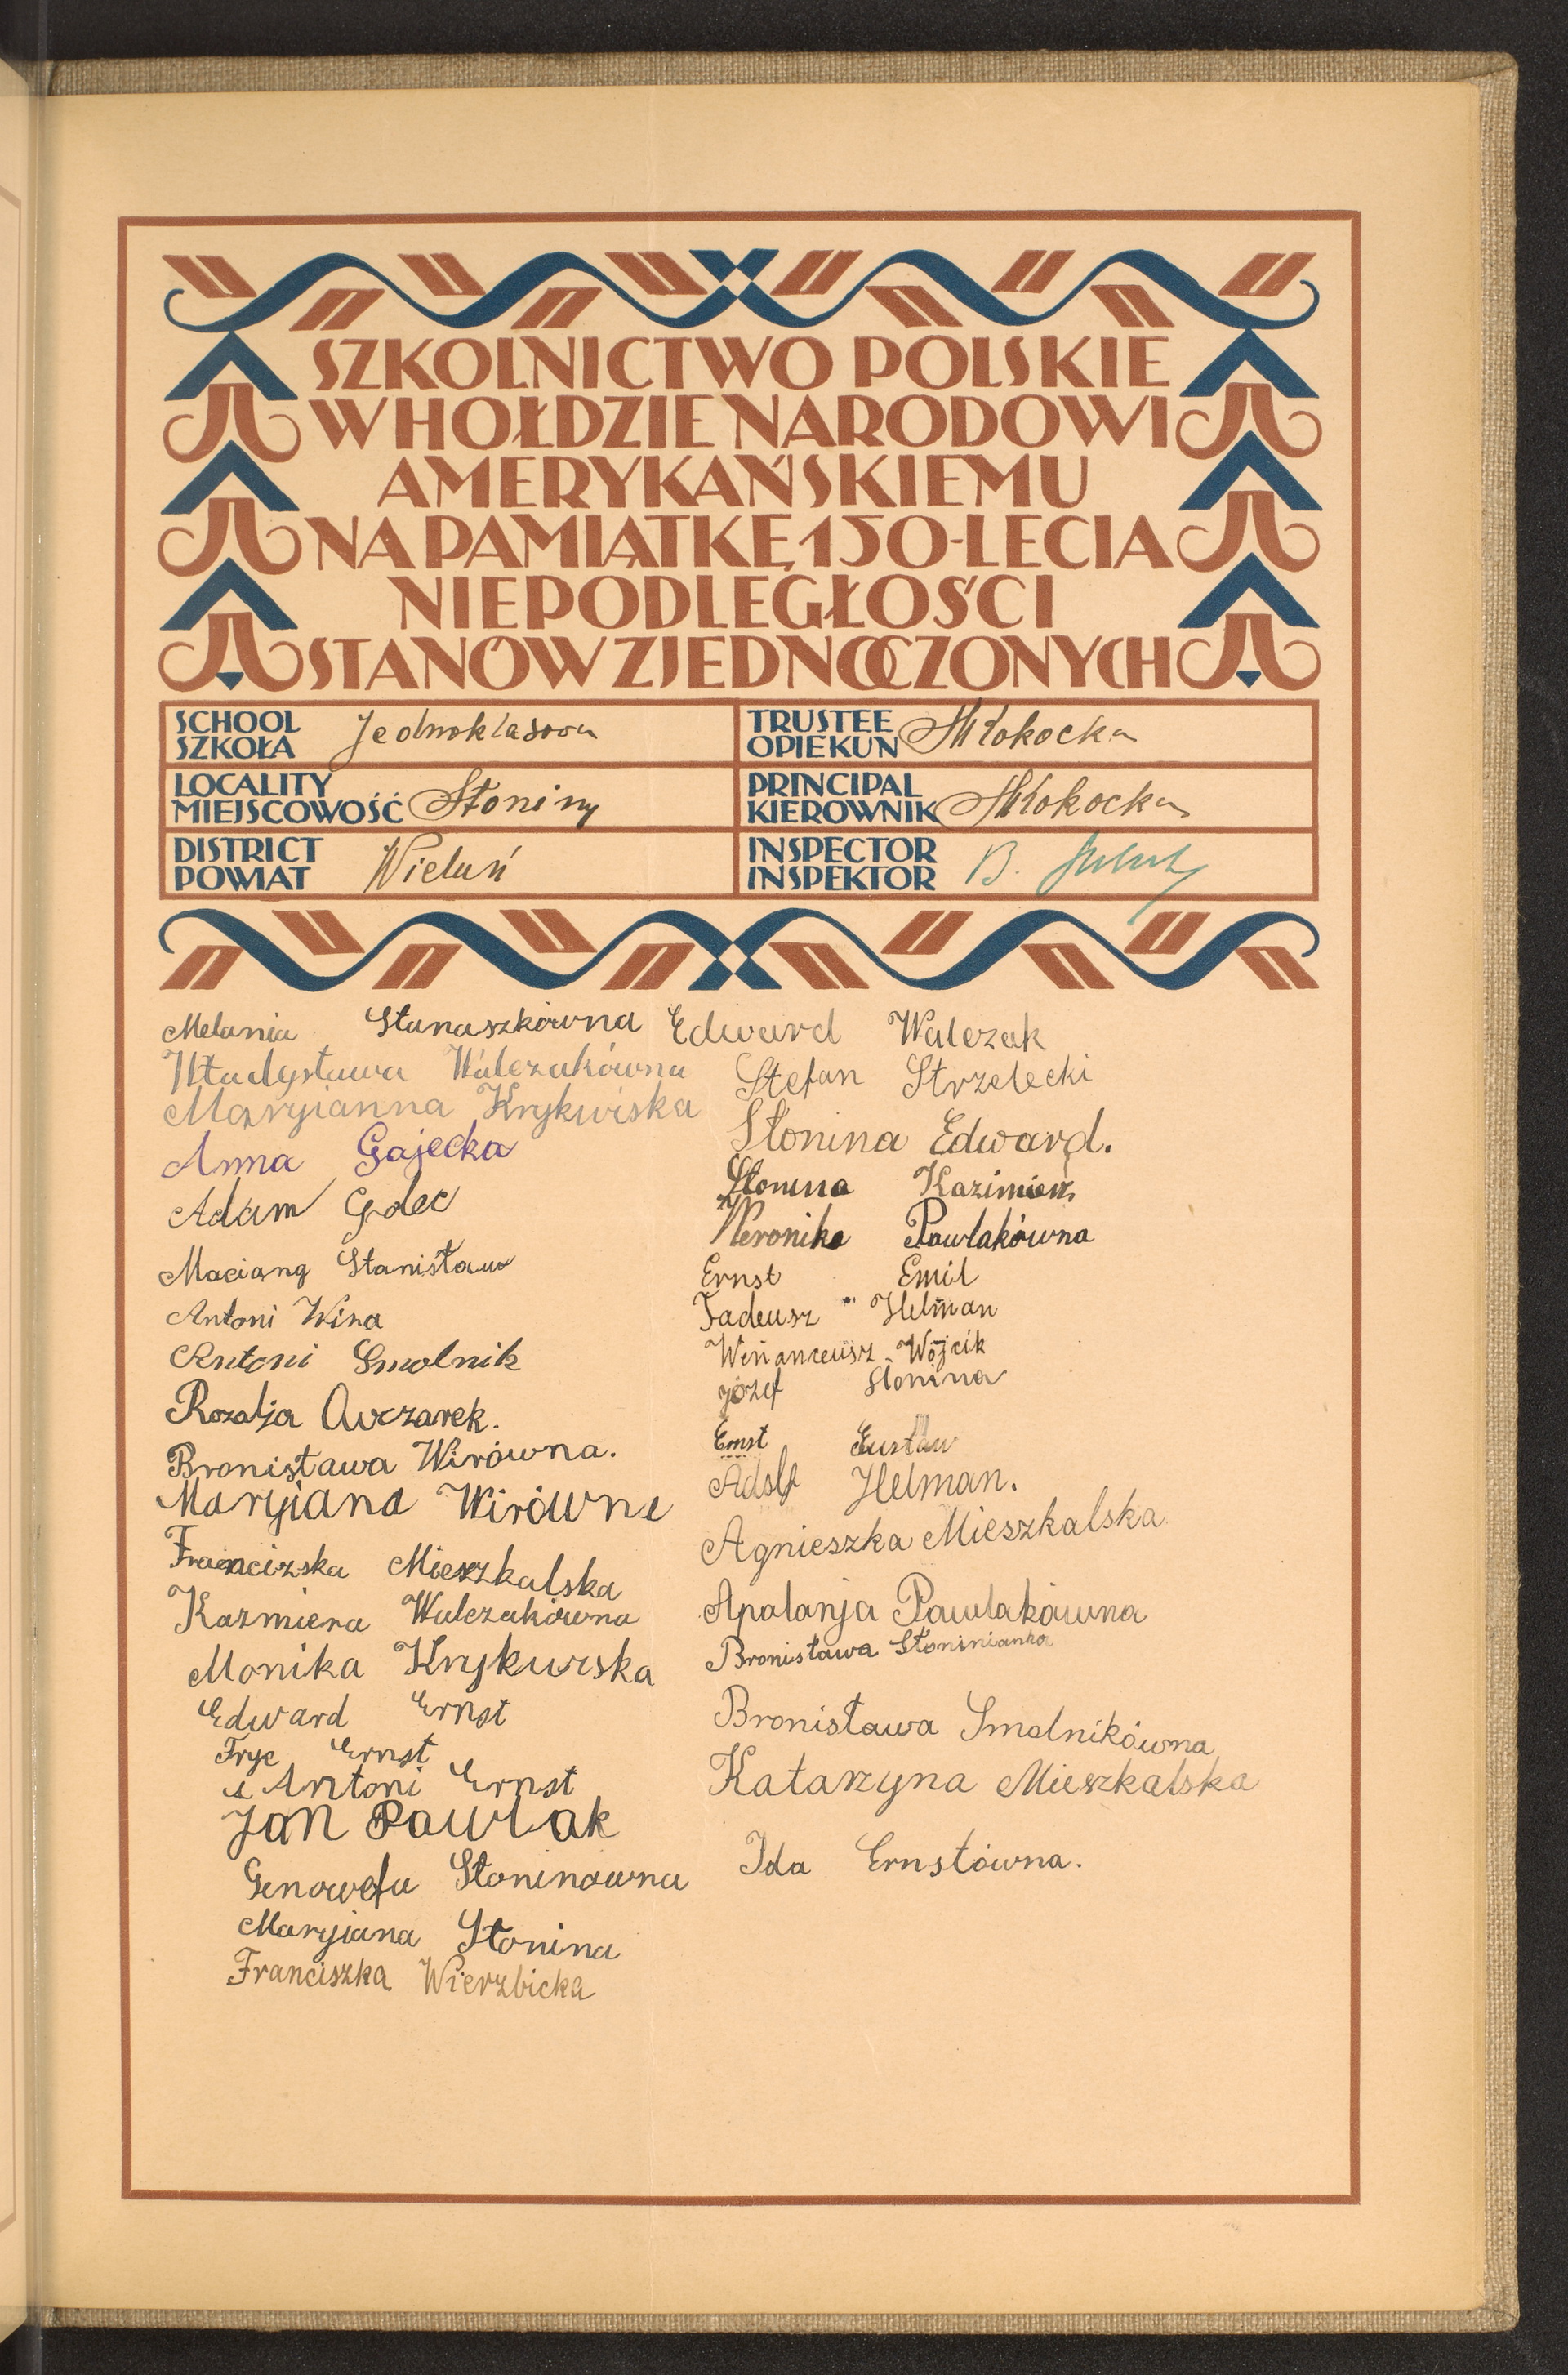 SZKOLNICTWO POLSKIE
W HOŁDZIE NARODOWI
AMERYKAŃSKIEMU
NA PAMIĄTKĘ 150-LECIA
NIEPODLEGŁOŚCI
STANÓW ZJEDNOCZONYCH
SCHOOL
SZKOŁA Jednoklasowa
TRUSTEE
OPIEKUN MŁokocka
LOCALITY
MIEJSCOWOŚĆ Słoniny
PRINCIPAL
KIEROWNIK MŁokocka
DISTRICT
POWIAT Wieluń
INSPECTOR
INSPEKTOR B.
Melania Stanaszkówna
Władysława Walczakówna
Maryianna Krykwiska
Anna Gajecka
Adam Golec
Maciąng Stanisław
Antoni Wira
Antoni Smolnik
Rozalja Owczarek.
Bronisława Wirówna.
Maryiana Wirówna
Franciszka Mieszkalska
Kazmiera Walczakówna
Monika Krykwiska
Edward Ernst
Fryc Ernst
Antoni Ernst
Jan Pawlak
Genowefa Słoninówna
Maryiana Słonina
Franciszka Wierzbicka
Edward Walczak
Stefan Strzelecki
Słonina Edward.
Słonina Kazimierz
Weronika Pawlakówna
Ernst Emil
Tadeusz Helman
Wójcik
Józef Słonina
Ernst Gustaw
Adolf Helman.
Agnieszka Mieszkalska
Apolanja Pawlakówna
Bronisława Słoninianka
Bronisława Smolnikówna
Katarzyna Mieszkalska
Ida Ernstówna.